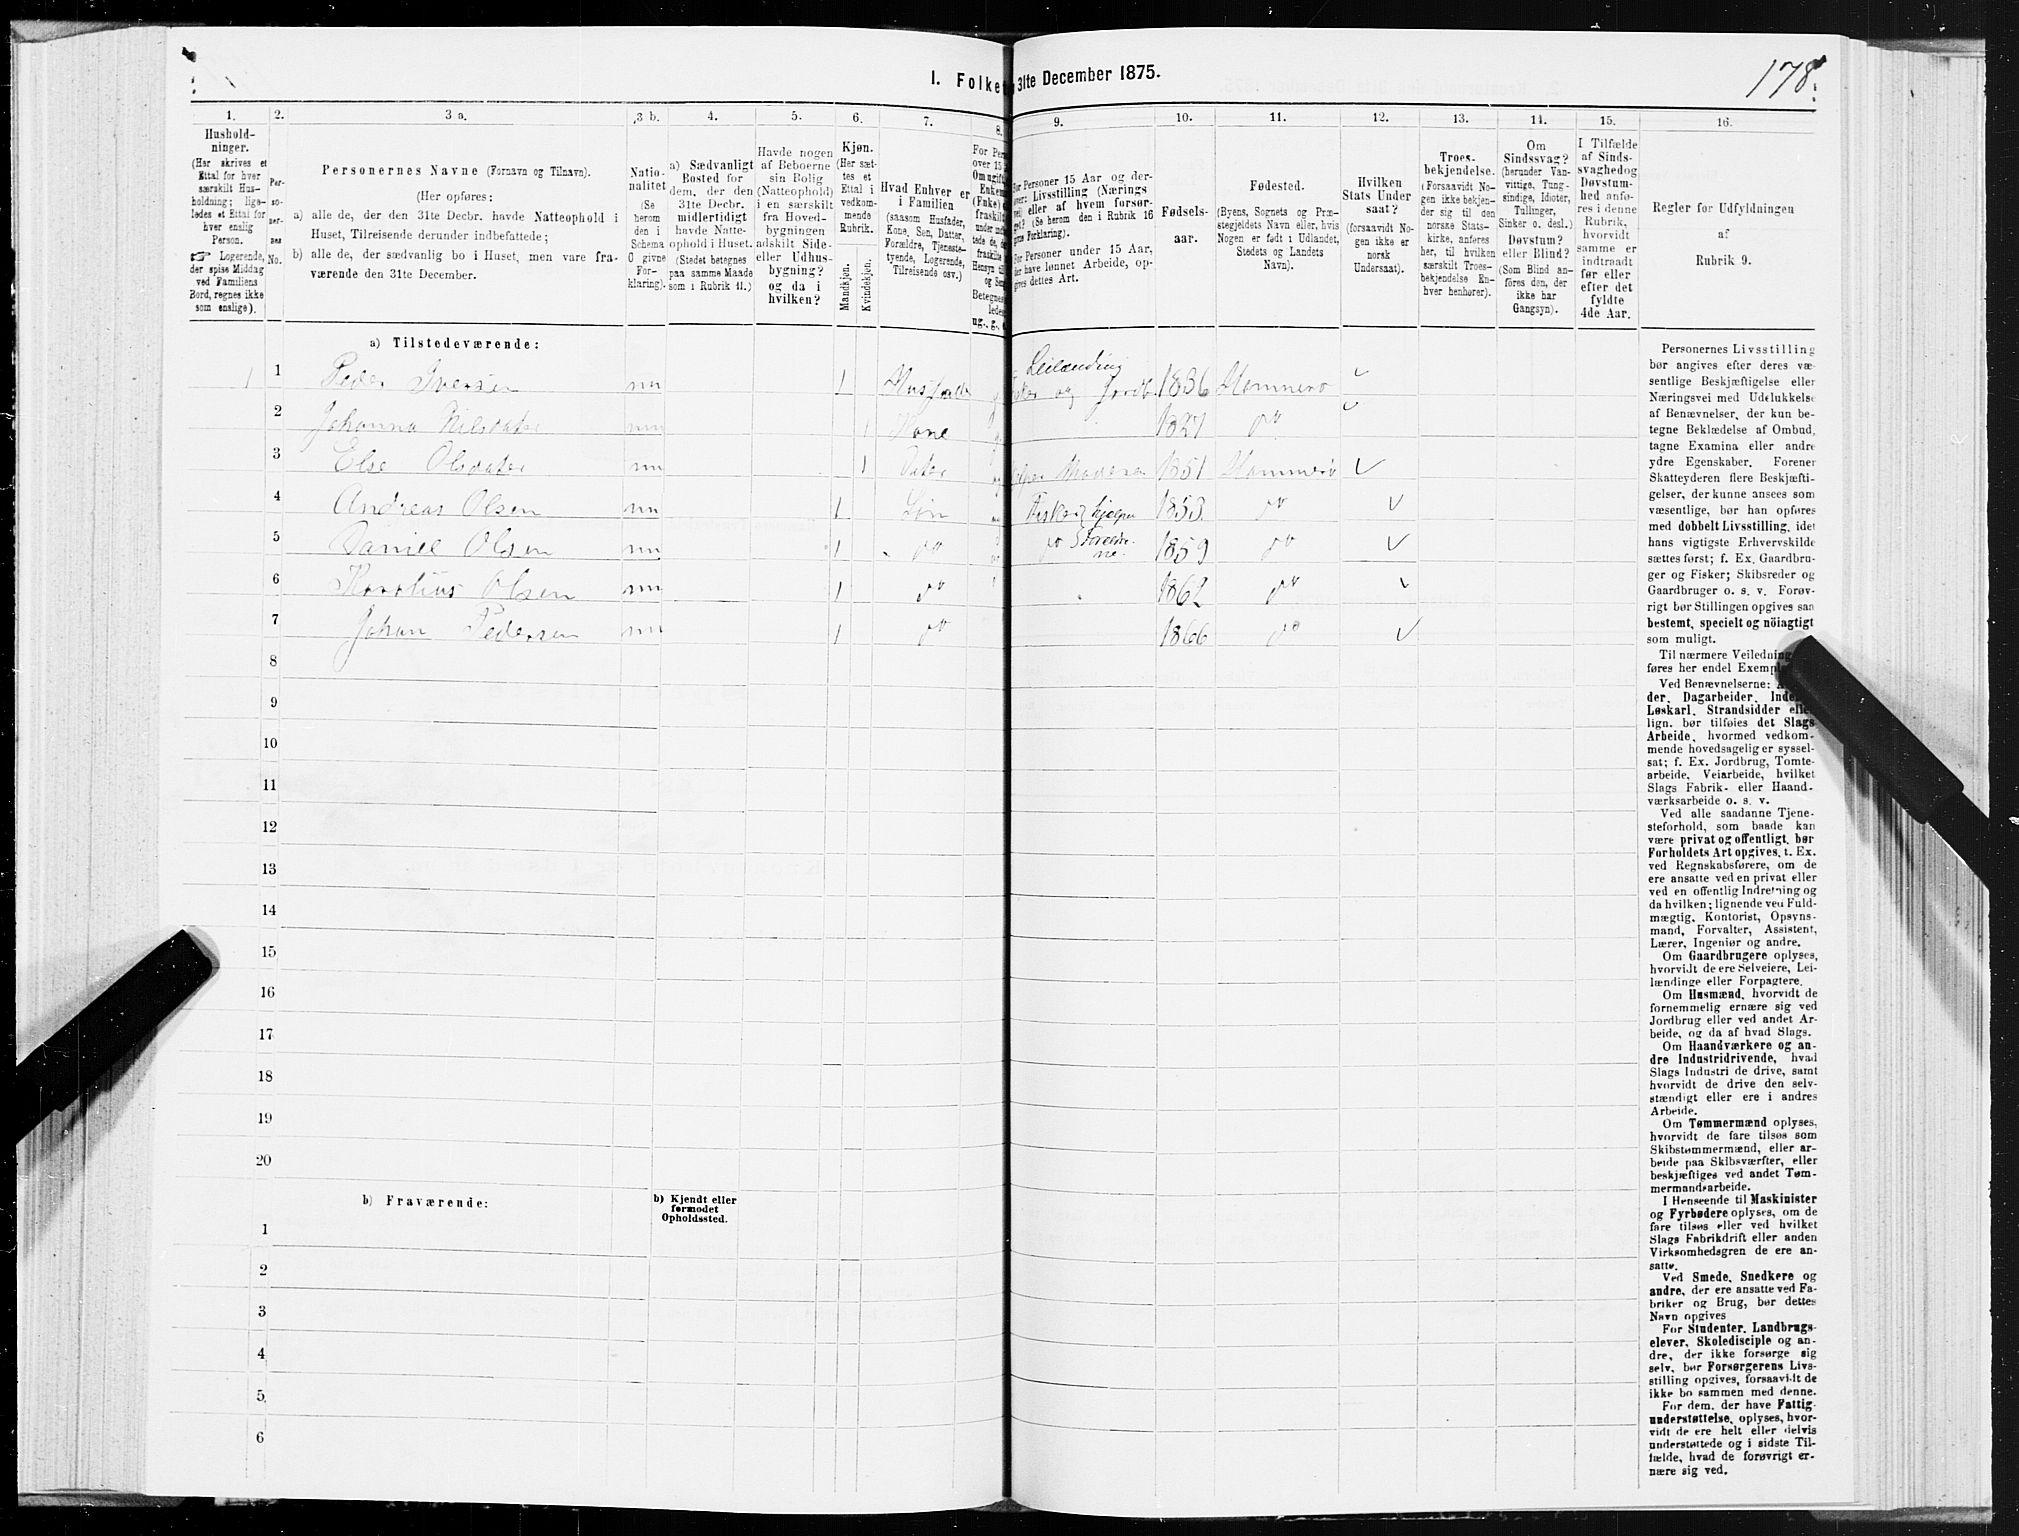 178
I. Folke
31te December 1875.
1.
2.
3 a.
3 b.
4.
5.
6.
7.
8.
9.
10.
11.
12.
13.
14.
15.
16.
Hushold-
ninger.
(Her skrives et
Ettal for hver
særskilt Hus-
holdning; lige-
ledes et Ettal for
hver enslig
Person.
☞ Logerende,
der spise Middag
ved Familiens
Bord, regnes ikke
som enslige).
Per-
so-
ner-
nes
No.
Personernes Navne (Fornavn og Tilnavn).
(Her opføres:
a) alle de, der den 31te Decbr. havde Natteophold i
Huset, Tilreisende derunder indbefattede;
b) alle de, der sædvanlig bo i Huset, men vare fra-
værende den 31te December.
Natio-
nalitet
(Se
herom
den i
Schema
O givne
For-
klaring).
a) Sædvanligt
Bosted for
dem, der den
31te Decbr.
midlertidigt
havde Natte-
ophold i Huset.
(Stedet betegnes
paa samme Maade
som i Rubrik 11.)
Havde nogen
af Beboerne
sin Bolig
(Natteophold)
i en særskilt
fra Hoved-
bygningen
adskilt Side-
eller Udhus-
bygning?
og da i
hvilken?
Kjøn.
(Her sæt-
tes et
Ettal i
vedkom-
mende
Rubrik.
Mandkjøn.
Kvindekjøn.
Hvad Enhver er
i Familien
(saasom Husfader,
Kone, Søn, Datter,
Forældre, Tjeneste-
tyende, Logerende,
Tilreisende osv.)
For Per
over 15
Om ugift
Enkem
(Enke)
fraskilt
For Personer 15 Aar og der-
over: Livsstilling (Nærings
vei) eller af hvem forsør-
get? (Se herom den i Rubrik 16
givne Forklaring).
For Personer under 15 Aar,
der have lønnet Arbeide, op-
gives dettes Art.
Fødsels-
aar.
Fødested.
(Byens, Sognets og Præ-
stegjeldets Navn eller, hvis
Nogen er født i Udlandet,
Stedets og Landets
Navn).
Hvilken
Stats Under
saat?
(forsaavidt No-
gen ikke er
norsk
Undersaat).
Troes-
bekjendelse.
(Forsaavidt No-
gen ikke bekjen-
der sig til den
norske Stats-
kirke, anføres
her, til hvilken
særskilt Troes-
bekjendelse En-
hver henhører).
Om
Sindssvag?
(herunder Van-
vittige, Tung-
sindige, Idioter,
Tullinger,
Sinker o. desl.)
Døvstum?
eller Blind?
(Som Blind an-
føres den, der
ikke har
Gangsyn).
I Tilfælde
af Sinds-
svaghed og
Døvstum-
hed anfø-
res i denne
Rubrik,
hvorvidt
samme er
indtraadt
før eller
efter det
fyldte
4de Aar.
Regler for Udfyldningen
af
Rubrik 9.
a) Tilstedeværende:
1 1 Peder Iversen nn 1 Husfader g Leilænding
Fisker og Jordb. 1836 Hammerø
2 Johanna Nilsdatter nn 1 Kone 1827 do
3 Else Olsdater nn 1 Dater 1851 Hammerø
4 Andreas Olsen nn 1 Søn Fisker, hjelper 1853 do
5 Daniel Olsen nn 1 do do 1859 do
6 Karolius Olsen nn 1 do 1862 do
7 Johan Pedersen nn 1 do 1866 do
8
9
10
11
12
13
14
15
16
17
18
19
20
b) Fraværende:
b) Kjendt eller
formodet
Opholdssted.
1
2
3
4
5
6
Personernes Livsstilling
bør angives efter deres væ-
sentlige Beskjæftigelse eller
Næringsvei med Udelukkelse
af Benævnelser, der kun be-
tegne Beklædelse af Ombud,
tagne Examina eller andre
ydre Egenskaber. Forener
Skatteyderen flere Beskjæfti-
gelser, der kunne ansees som
væsentlige, bør han opføres
med dobbelt Livsstilling, idet
hans vigtigste Erhvervskilde
sættes først; f. Ex. Gaardbru-
ger og Fisker; Skibsreder og
Gaardbruger o. s. v. Forøv-
rigt bør Stillingen opgives saa
bestemt, specielt og nöiagtigt
som muligt.
Til nærmere Veiledning
føres her endel Exempl
Ved Benævnelserne:
der, Dagarbeider, Inde
Løskarl, Strandsidder eller
lign. bør tilføies det Slags
Arbeide, hvormed vedkom-
mende hovedsagelig er syssel-
sat; f. Ex. Jordbrug, Tomte-
arbeide, Veiarbeide, hvilket
Slags Fabrik- eller Haand-
værksarbeide o. s. v.
Ved alle saadanne Tjene-
steforhold, som baade kan
være privat og offentligt, bør
Forholdets Art opgives, t. Ex.
ved Regnskabsførere, om de
ere ansatte ved en privat eller
ved en offentlig Indretning og
da hvilken; lignende ved Fuld-
mægtig, Kontorist, Opsyns-
mand, Forvalter, Assistent,
Lærer, Ingeniør og andre.
Om Gaardbrugere oplyses,
hvorvidt de ere Selveiere, Lei-
lændinge eller Forpagtere.
Om Husmænd, hvorvidt de
fornemmelig ernære sig ved
Jordbrug eller ved andet Ar-
beide, og da af hvad Slags.
Om Haandværkere og an-
dre Industridrivende, hvad
Slags Industri de drive, samt
hvorvidt de drive den selv-
stændigt eller ere i andres
Arbeide.
Om Tømmermænd oplyses,
hvorvidt de fare tilsøs som
Skibstømmermænd, eller ar-
beide paa Skibsværfter, eller
beskjæftiges ved andet Tøm-
mermandsarbeide.
I Henseende til Maskinister
og Fyrbødere oplyses, om de
fare tilsøs eller ved hvilket
Slags Fabrikdrift eller anden
Virksomhedsgren de ere an-
satte.
Ved Smede, Snedkere og
andre, der ere ansatte ved Fa-
briker og Brug, bør dettes
Navn opgives
For Studenter, Landbrugs-
elever, Skoledisciple og an-
dre, der ikke forsørge sig
selv, bør Forsørgerens Livs-
stilling opgives, forsaavidt de
ikke bo sammen med denne.
For dem, der have Fattig-
understøttelse, oplyses, hvor-
vidt de ere helt eller delvis
understøttede og i sidste Til-
fælde, hvad de forøvrigt er-
nære sig ved.